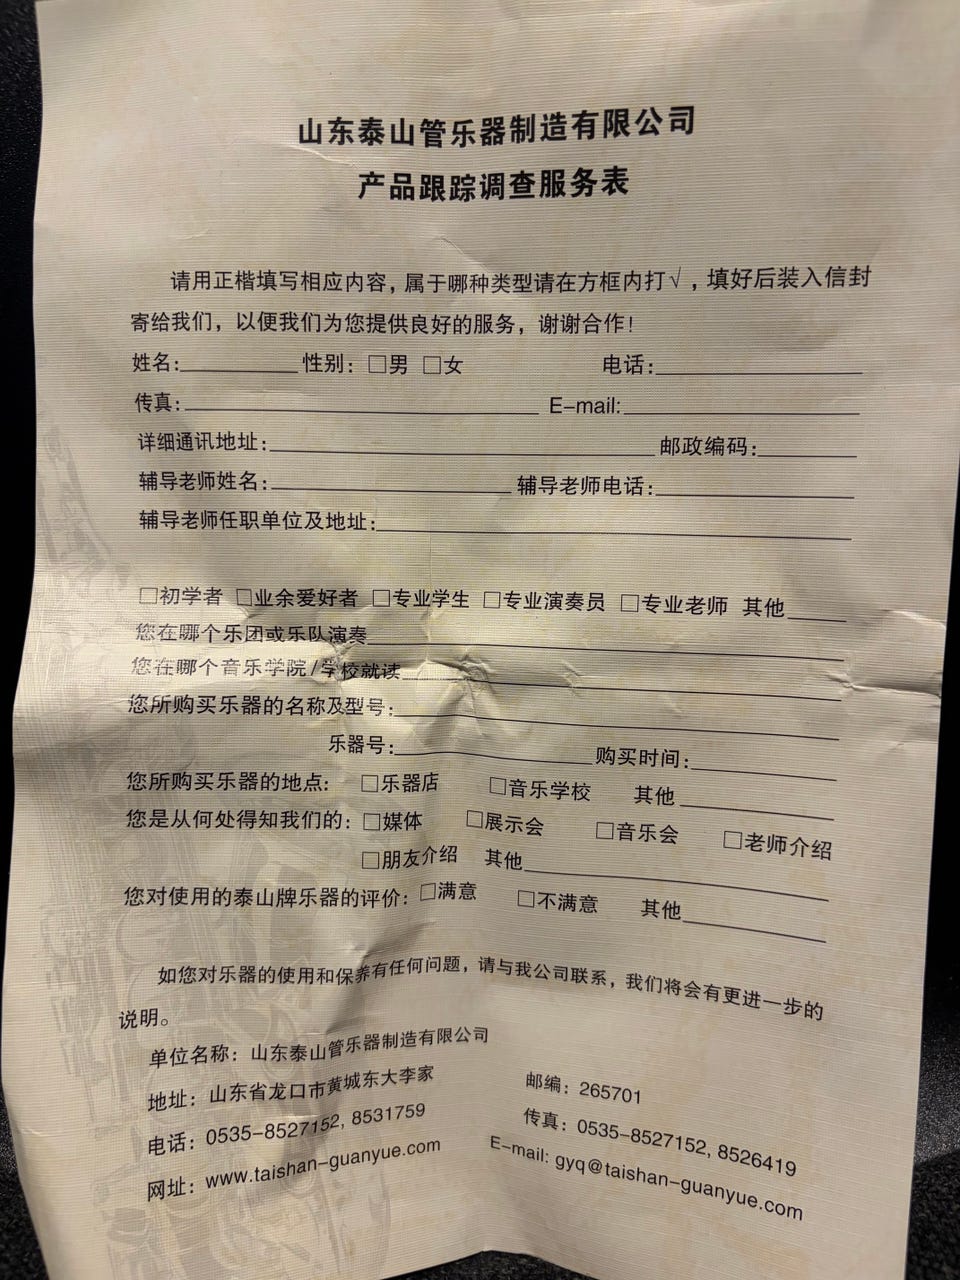 山东泰山管乐器制造有限公司
产品跟踪调查服务表
请用正楷填写相应内容，属于哪种类型请在方框内打√，填好后装入信封
寄给我们，以便我们为您提供良好的服务，谢谢合作！
姓名：__________ 性别：□男 □女 电话：__________
传真：__________ E-mail:__________
详细通讯地址：__________ 邮政编码：__________
辅导老师姓名：__________ 辅导老师电话：__________
辅导老师任职单位及地址：__________
□初学者 □业余爱好者 □专业学生 □专业演奏员 □专业老师 其他______
您在哪个乐团或乐队演奏__________
您在哪个音乐学院/学校就读__________
您所购买乐器的名称及型号：__________
乐器号：__________ 购买时间：__________
您所购买乐器的地点： □乐器店 □音乐学校 其他__________
您是从何处得知我们的：□媒体 □展示会 □音乐会 □老师介绍
□朋友介绍 其他__________
您对使用的泰山牌乐器的评价：□满意 □不满意 其他__________
如您对乐器的使用和保养有任何问题，请与我公司联系，我们将会有更进一步的
说明。
单位名称：山东泰山管乐器制造有限公司
地址：山东省龙口市黄城东大李家 邮编：265701
电话：0535-8527152, 8531759 传真：0535-8527152, 8526419
网址：www.taishan-guanyue.com E-mail: gyq@taishan-guanyue.com